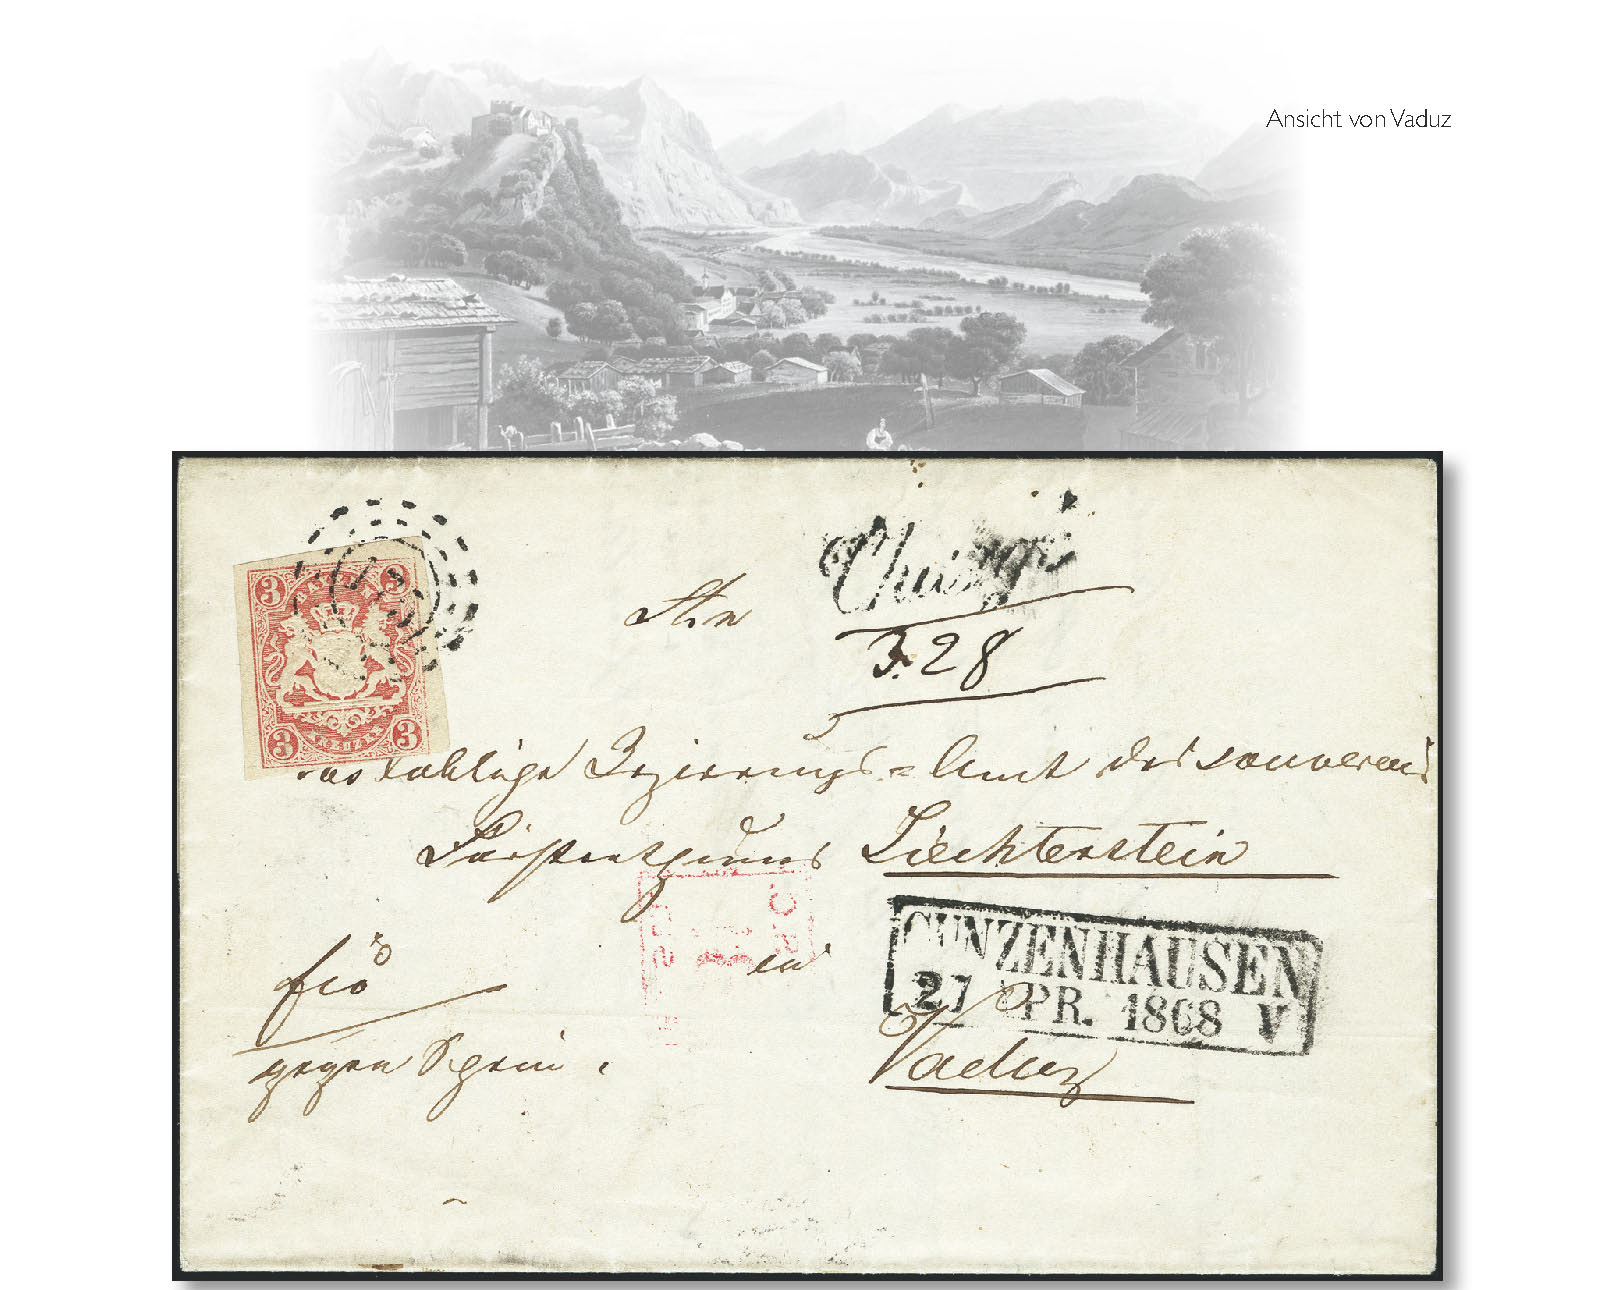 Ansicht von Vaduz
3 3
BAYERN
Chargé
An
3. 28
das löbliche Regierungs=Amt des souverain
Fürstenthums Liechtenstein
in
GUNZENHAUSEN
27 APR. 1868 V
frco
gegen Schein.
Vaduz
3 KREUZER 3